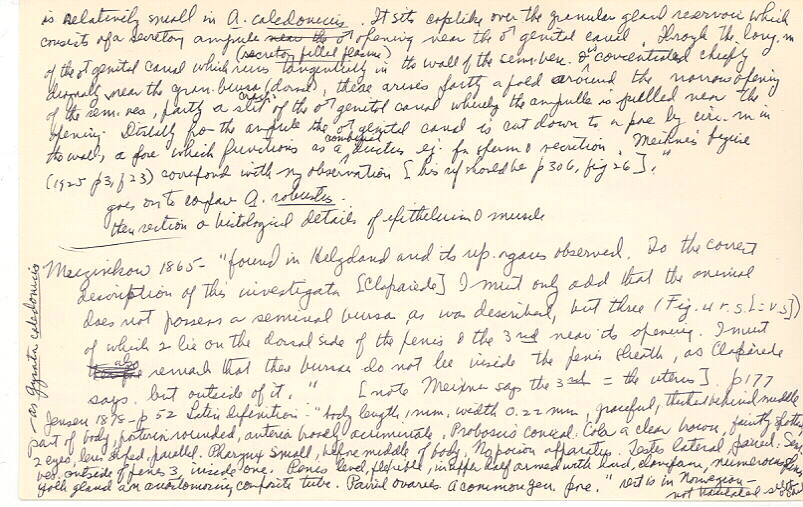 is relatively small in A. caledonicus. It sits caplike over the granular gland reservoir which
consists of a secretory ampule near the ♂ opening near the ♂ genital canal. Through the long. m
(secretory filled plasma)
of the ♂ genital canal which runs tangentially in the wall of the sem. ves. & concentrated chiefly
diagonally near the gran. bursa (dorsal), there arises partly a fold around the narrow opening
of the sem. ves, partly a slit of the ♂ genital canal whereby the ampulle is pulled near the
opening. Distally for the ampule the ♂ genital canal is cut down to a pore by circ. m in
the wall, a pore which functions as a combined ductus ej. for sperm & secretion. Meixner's figure
(1925 p3, f 23) correspond with my observation [his ref should be p 306, fig 26]."
goes on to compare A. robustus.
then section on histological details of epithelium & muscle
Mecznikow 1865 - "found in Helgoland and its rep. organs observed. To the correct
description of this investigator [Claparede] I must only add that the animal
does not possess a seminal bursa as was described, but three (Fig. 4 v. s. [= v.s])
of which 2 lie on the dorsal side of the penis & the 3rd near its opening. I must
also remark that these bursae do not lie inside the penis sheath, as Claparede
says, but outside of it." [note Meixner says the 3rd = the uterus]. p177
- as Gyrator caledonicus
Jensen 1878 - p 52 Latin definition - "body length 1 mm, width 0.22 mm, graceful, thickest behind middle
part of body, posterior rounded, anterior broadly acuminate, Proboscis conical. Color a clear brown, faintly spotted
2 eyes, lens shaped, parallel. Pharynx small, before middle of body. No poison apparatus. Testes lateral paired. Sem.
ves. outside of penis 3, inside one. Penis flexible, in upper half armed with hard, numerous
yolk gland an anastomosing composite tube. Paired ovaries. A common gen. pore." rest is in Norwegian -
not translated